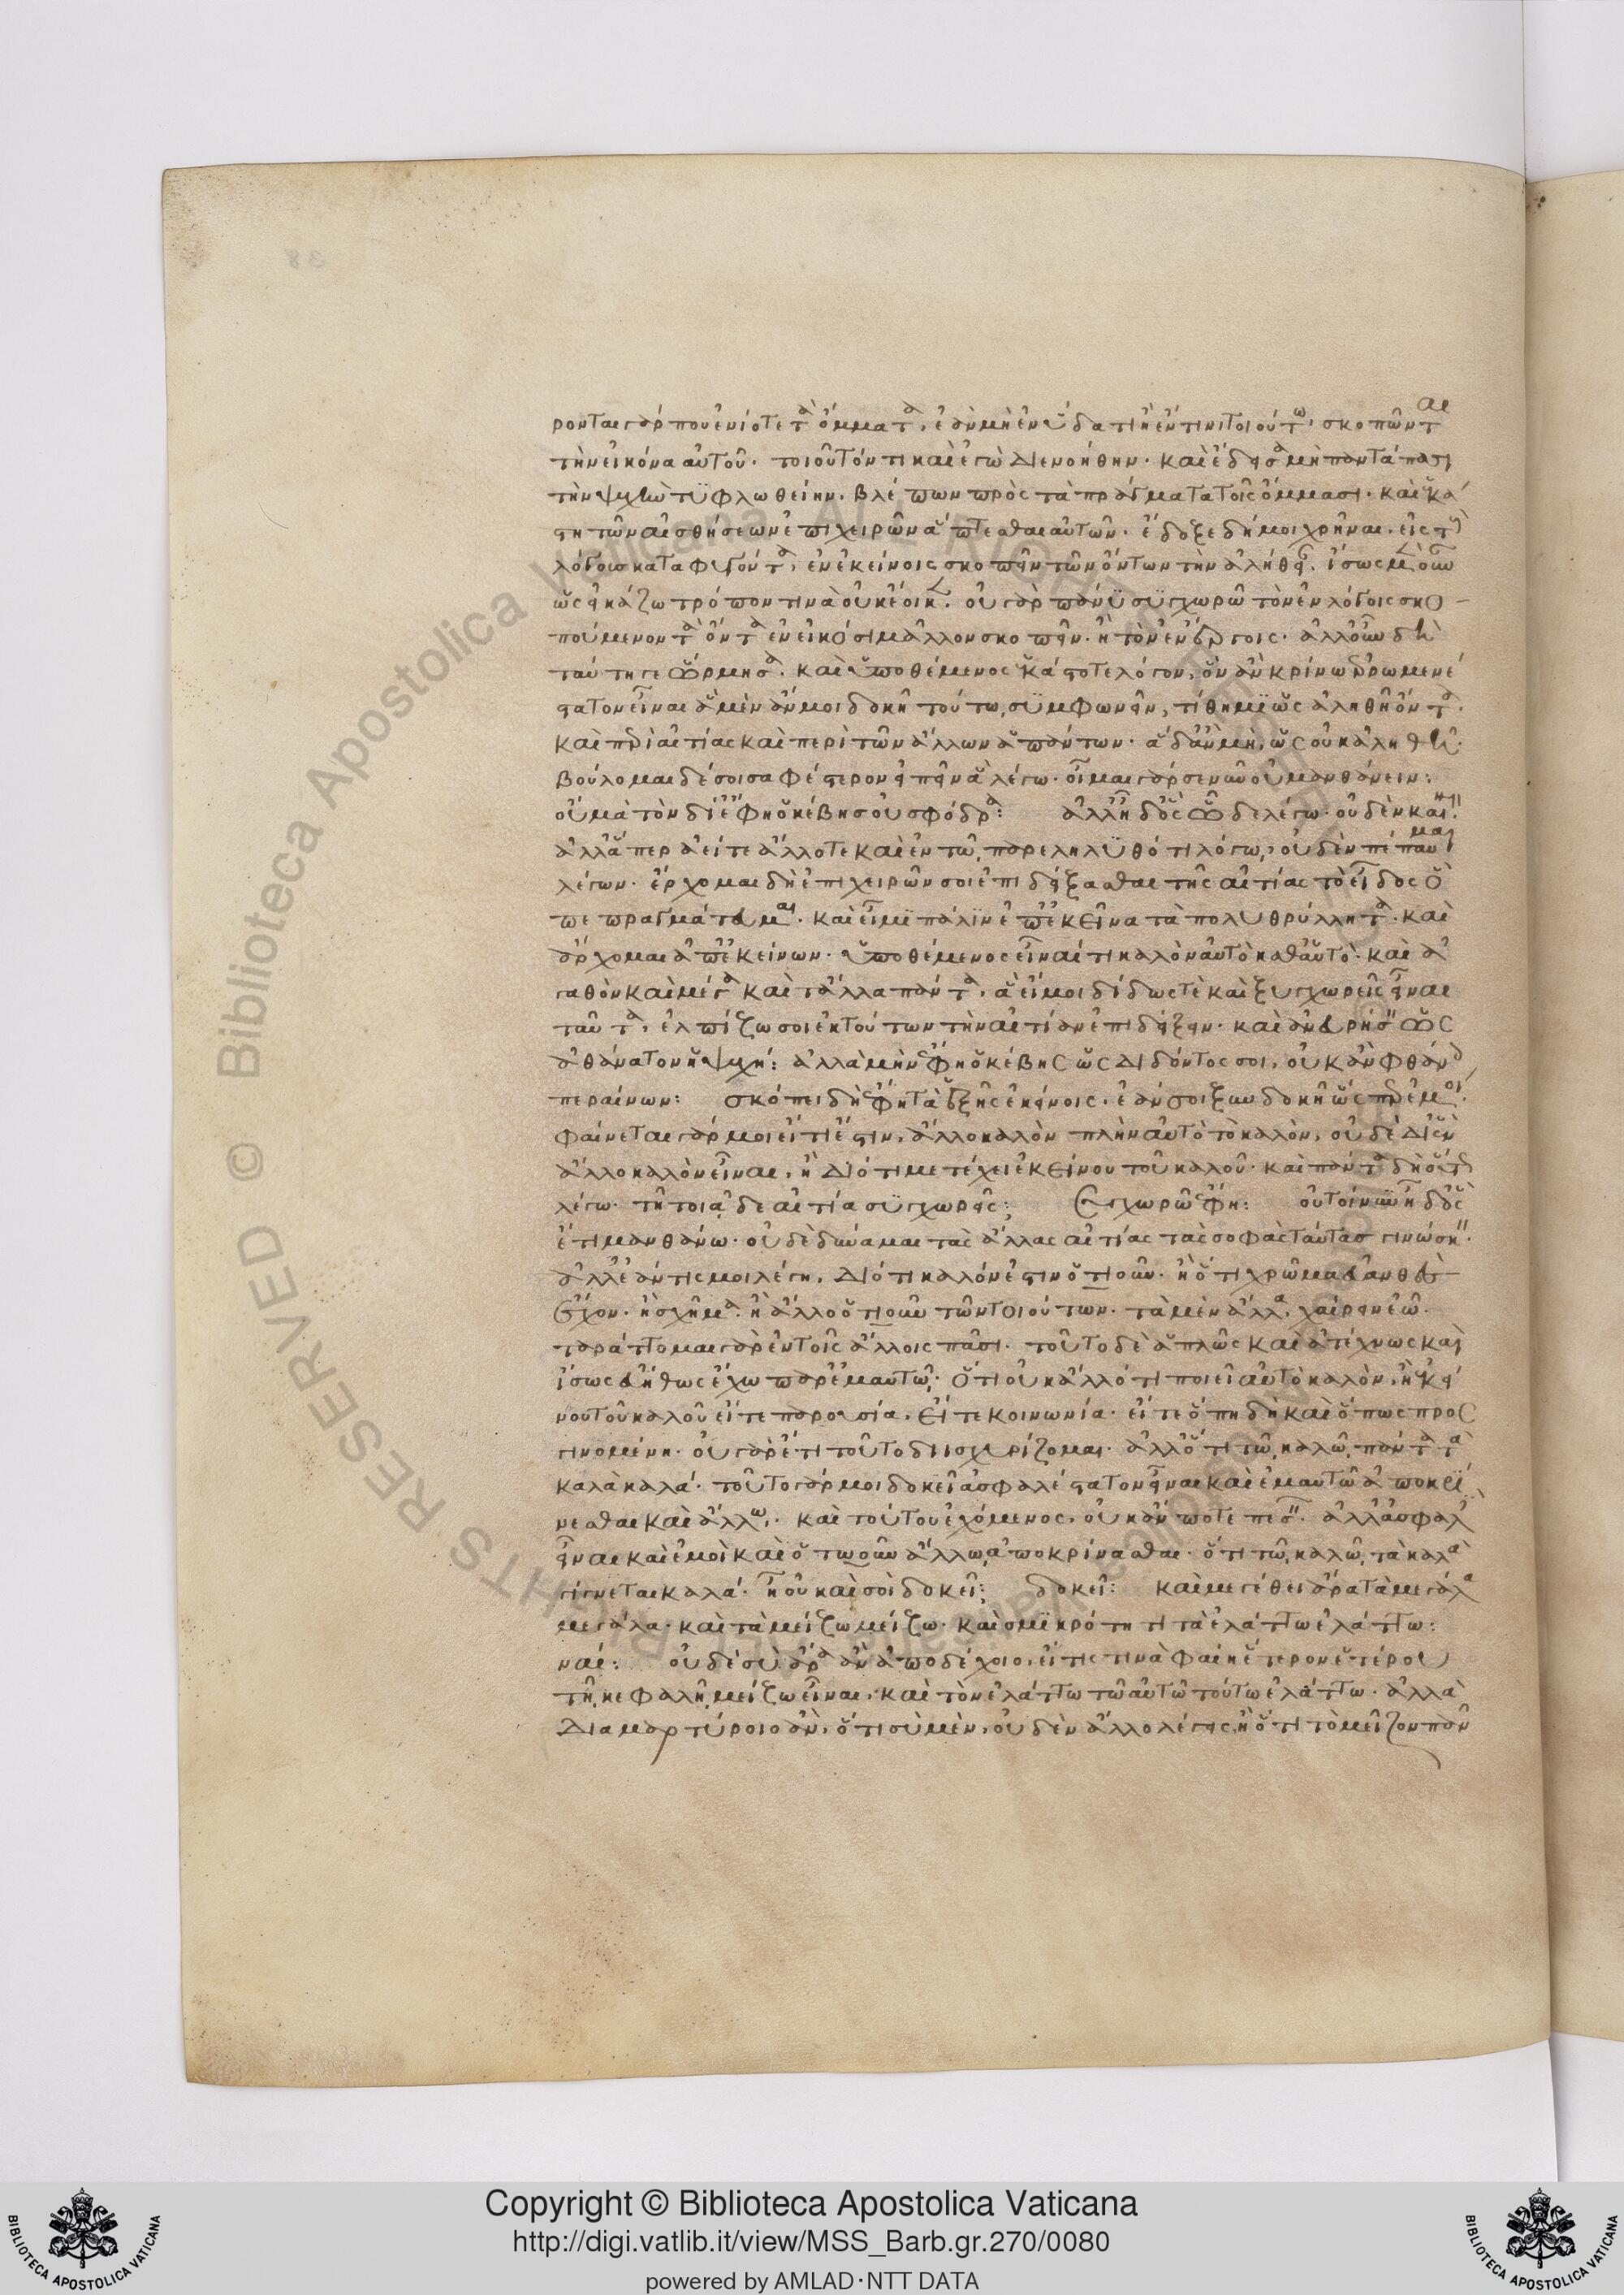 ρονται γάρ που ἐνίοτε τὰ ὄμματα, ἐὰν μὴ ἐν ὕδατι ἢ ἔν τινι τοιούτω, σκοπῶνται
τὴν εἰκόνα αὐτοῦ. τοιοῦτόν τι καὶ ἐγὼ διενοήθην. καὶ ἔδεισα μὴ παντάπασι
τὴν ψυχὴν τϋφλωθείην. βλέπων πρὸς τὰ πράγματα τοῖς ὄμμασι. καὶ ἑκά
στη τῶν αἰσθήσεων ἐπιχειρῶν ἅπτεσθαι αὐτῶν. ἔδοξε δή μοι χρῆναι. εἰς τοὺς
λόγους καταφυγόντα, ἐν ἐκείνοις σκοπεῖν τῶν ὄντων τὴν ἀλήθειαν. ἴσως μὲν οὖν
ὧς εἰκάζω τρόπον τινὰ οὐκ ἔοικεν. οὐ γὰρ πάνϋ συγχωρῶ τὸν ἐν λόγοις σκο
πούμενον τὰ ὄντα ἐν εἰκόσι μᾶλλον σκοπεῖν. ἢ τὸν ἐν ἔργοις. ἀλλ' οὖν δὴ
ταύτη γε ὥρμησα. καὶ ὑποθέμενος ἑκάστοτε λόγον, ὃν ἂν κρίνω ἐρρωμενέ
στατον εἶναι ἃ μὲν ἄν μοι δοκῆ τούτω, συμφωνεῖν, τίθημϊ ὡς ἀληθῆ ὄντα.
καὶ περὶ αἰτίας καὶ περὶ τῶν ἄλλων ἁπάντων. ἃ δ' ἂν μὴ, ὡς οὐκ ἀληθῆ.
βούλομαι δέ σοι σαφέστερον εἰπεῖν ἃ λέγω. οἶμαι γάρ σε νῦν οὐ μανθάνειν:
οὐ μὰ τὸν δί' ἔφη ὁ κέβης οὐ σφόδρα: ἀλλ' ἦ δ' ὃς ὧδε λέγω. οὐδὲν καινόν.
ἀλλ' ἅπερ ἀεί τε ἄλλοτε καὶ ἐν τῶ παρεληλϋθότι λόγω, οὐδὲν πέπαυμαι
λέγων. ἔρχομαι δὴ ἐπιχειρῶν σοι ἐπιδείξασθαι τῆς αἰτίας τὸ εἶδος ὃ
πεπραγμάτευμαι. καὶ εἶμϊ πάλϊν ἐπ' ἐκεῖνα τὰ πολυθρύλλητα. καὶ
ἄρχομαι ἀπ' ἐκείνων. ὑποθέμενος εἶναί τι καλὸν αὐτὸ καθ' αὑτὸ. καὶ ἀ
γαθὸν καὶ μέγα καὶ τἄλλα πάντα, ἃ εἴ μοι δίδως τὲ καὶ ξυγχωρεῖς εἶναι
ταῦτα, ἐλπίζω σοι ἐκ τούτων τὴν αἰτίαν ἐπιδείξειν. καὶ ἀνευρήσειν ὡς
ἀθάνατον ἡ ψυχή: ἀλλὰ μὴν ἔφη ὁ κέβης ὡς διδόντος σοι, οὐκ ἂν φθάνοις
περαίνων: σκόπει δὴ ἔφη τὰ ἑξῆς ἐκείνοις. ἐάν σοι ξυνδοκῆ ὥσπερ ἐμοί.
φαίνεται γάρ μοι εἴ τι ἔστιν, ἄλλο καλὸν πλὴν αὐτὸ τὸ καλὸν, οὐδὲ δι' ἓν
ἄλλο καλὸν εἶναι, ἢ διότι μετέχει ἐκείνου τοῦ καλοῦ. καὶ πάντα δὴ οὕτω
λέγω. τῆ τοιᾷδε αἰτία συγχωρεῖς; Συγχωρῶ ἔφη: οὐ τοίνυν ἦ δ' ὃς
ἔτι μανθάνω. οὐδὲ δύναμαι τὰς ἄλλας αἰτίας τὰς σοφὰς ταύτας γινώσκειν.
ἀλλ' ἐάν τις μοι λέγη, διότι καλόν ἐστιν ὁτιοῦν. ἢ ὅτι χρῶμα εὐανθὲς
ἔχον. ἢ σχῆμα. ἢ ἄλλο ὁτιοῦν τῶν τοιούτων. τὰ μὲν ἄλλα, χαίρειν ἐῶ.
ταράττομαι γὰρ ἐν τοῖς ἄλλοις πᾶσι. τοῦτο δὲ ἁπλῶς καὶ ἀτέχνως καὶ
ἴσως εὐήθως ἔχω παρ' ἐμαυτῶ. ὅτι οὐκ ἄλλό τι ποιεῖ αὐτὸ καλὸν, ἢ ἐκεί
νου τοῦ καλοῦ εἴτε παρουσία, εἴτε κοινωνία. εἴτε ὅπη δὴ καὶ ὅπως προς
γινομένη. οὐ γὰρ ἔτι τοῦτο διισχυρίζομαι. ἀλλ' ὅτι τῶ καλῶ πάντα τὰ
καλὰ καλά. τοῦτο γάρ μοι δοκεῖ ἀσφαλέστατον εἶναι καὶ ἐμαυτῶ ἀποκρί
νεσθαι καὶ ἄλλω. καὶ τούτου ἐχόμενος, οὐκ ἄν ποτε πεσεῖν. ἀλλ' ἀσφαλὲς
εἶναι καὶ ἐμοὶ καὶ ὁτωοῦν ἄλλω ἀποκρίνασθαι. ὅτι τῶ καλῶ τὰ καλὰ
γίγνεται καλά. ἢ οὐ καὶ σοὶ δοκεῖ; δοκεῖ: καὶ μεγέθει ἄρα τὰ μεγάλα
μεγάλα. καὶ τὰ μείζω μείζω. καὶ σμϊκρότητι τὰ ἐλάττω ἐλάττω:
ναί: οὐδὲ σὺ ἄρα ἂν ἀποδέχοιο, εἴ τις τινὰ φαίη ἕτερον ἑτέρου
τῆ κεφαλῆ μείζω εἶναι, καὶ τὸν ἐλάττω τῶ αὐτῶ τούτω ἐλάττω. ἀλλὰ
διαμαρτύροιο ἂν, ὅτι σὺ μὲν, οὐδὲν ἄλλο λέγεις, ἢ ὅτι τὸ μεῖζον πᾶν
Copyright © Biblioteca Apostolica Vaticana
http://digi.vatlib.it/view/MSS_Barb.gr.270/0080
powered by AMLAD·NTT DATA